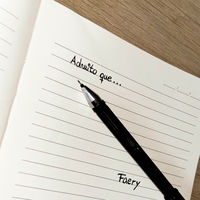 Admito que...
Faery